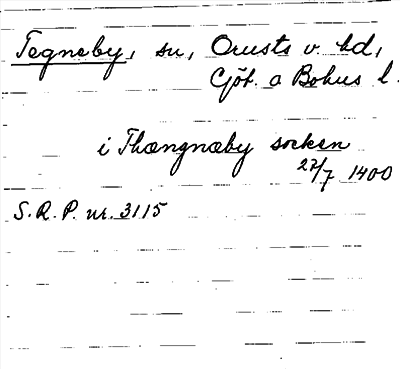 Tegneby, sn, Orusts v. hd,
Göt. o Bohus l.
i Thængnæby socken
27/7 1400
S.R.P. nr. 3115